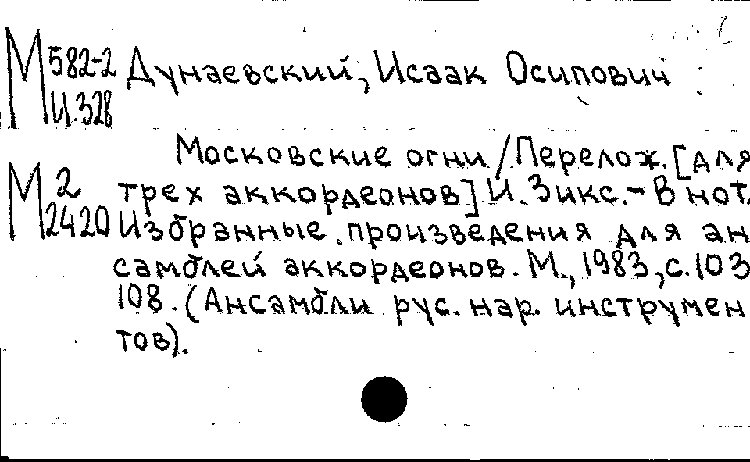 М 582-2 Дунаевский, Исаак Осипович
И.328
Московские огни / Перелож. [для
М 2 трех аккордеонов] И. Зикс. - В нот.
2420 Избранные произведения для ан
самблей аккордеонов. М., 1983, с. 103
108. (Ансамбли рус. нар. инструмен
тов).